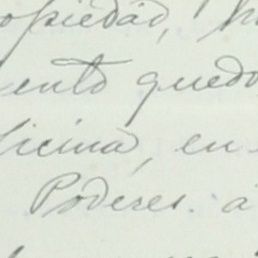 opiedad,
ento quedo
licina, en-
Poderes. á